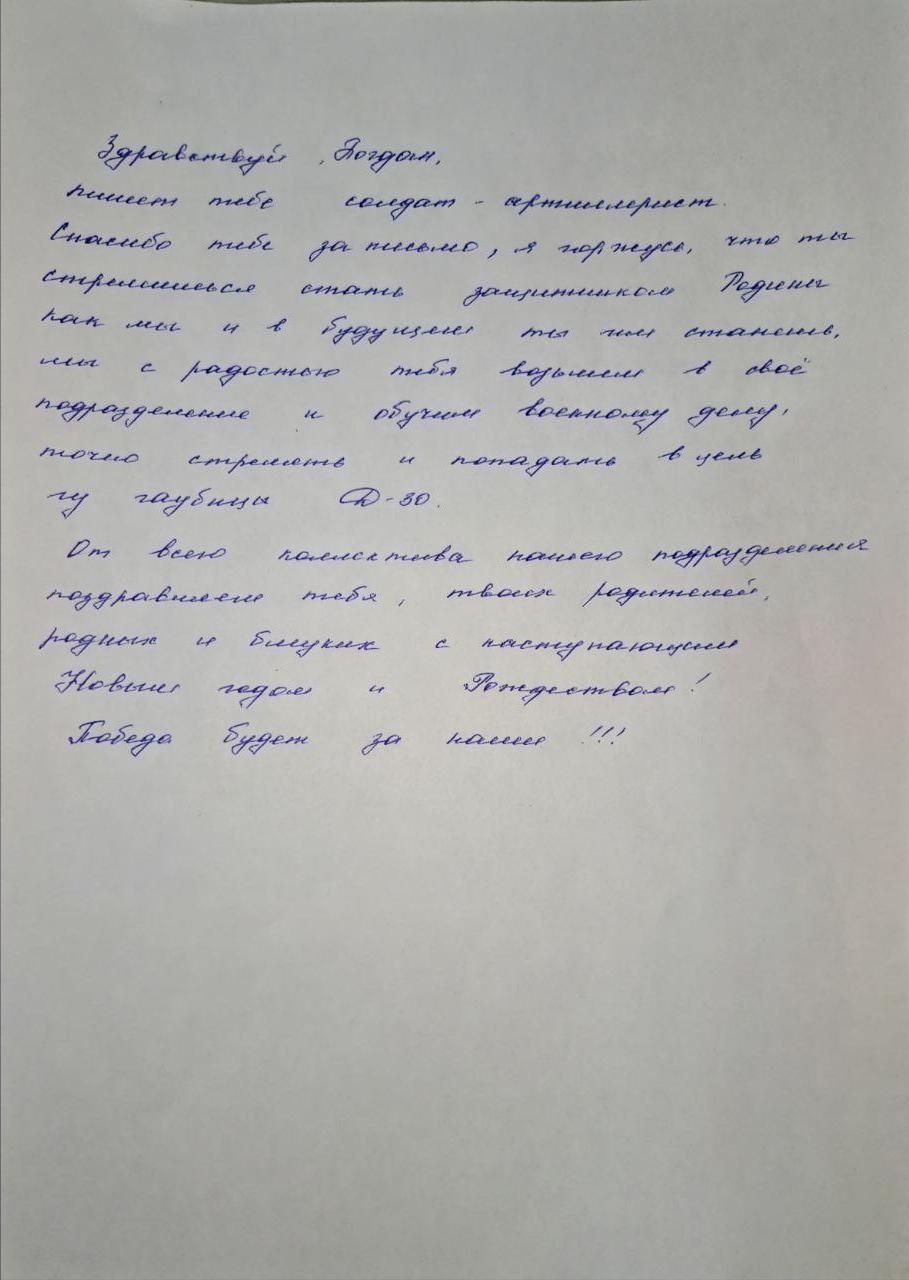 Здравствуй, Богдан,
пишет тебе солдат - артиллерист.
Спасибо тебе за письмо, я горжусь, что ты
стремишься стать защитником Родины
как мы и в будущем ты им станешь,
мы с радостью тебя возьмем в своё
подразделение и обучим военному делу,
точно стрелять и попадать в цель
из гаубицы Д-30.
От всего коллектива нашего подразделения
поздравляем тебя, твоих родителей,
родных и близких с наступающим
Новым годом и Рождеством!
Победа будет за нами !!!